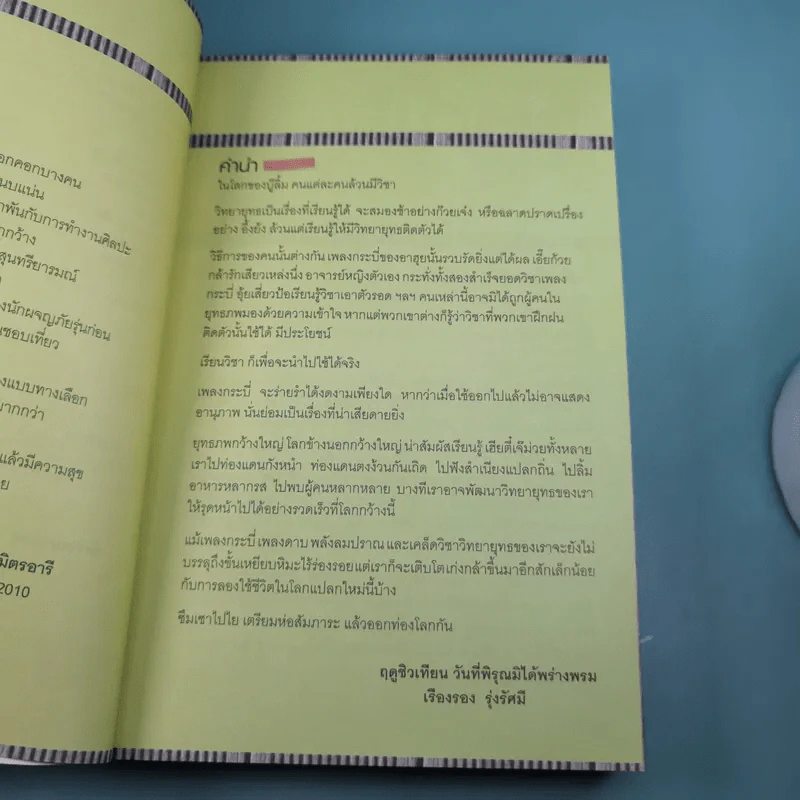 อกคอกบางคน
นบแน่น
าพันกับการทำงานศิลปะ
ากกว้าง
สุนทรียารมณ์
งนักผจญภัยรุ่นก่อน
นชอบเที่ยว
งแบบทางเลือก
มากกว่า
แล้วมีความสุข
ย
มิตรอารี
2010
คำนำ
ในโลกของบู๊ลิ้ม คนแต่ละคนล้วนมีวิชา
วิทยายุทธเป็นเรื่องที่เรียนรู้ได้ จะสมองช้าอย่างก๊วยเจ๋ง หรือฉลาดปราดเปรื่อง
อย่าง อึ้งย้ง ล้วนแต่เรียนรู้ให้มีวิทยายุทธติดตัวได้
วิธีการของคนนั้นต่างกัน เพลงกระบี่ของอาฮุยนั้นรวบรัดยิ่งแต่ได้ผล เอี้ยก้วย
กล้ารักเสียวเหล่งนึ่ง อาจารย์หญิงตัวเอง กระทั่งทั้งสองสำเร็จยอดวิชาเพลง
กระบี่ อุ้ยเสี่ยวป้อเรียนรู้วิชาเอาตัวรอด ฯลฯ คนเหล่านี้อาจมิได้ถูกผู้คนใน
ยุทธภพมองด้วยความเข้าใจ หากแต่พวกเขาต่างก็รู้ว่าวิชาที่พวกเขาฝึกฝน
ติดตัวนั้นใช้ได้ มีประโยชน์
เรียนวิชา ก็เพื่อจะนำไปใช้ได้จริง
เพลงกระบี่ จะร่ายรำได้งดงามเพียงใด หากว่าเมื่อใช้ออกไปแล้วไม่อาจแสดง
อานุภาพ นั่นย่อมเป็นเรื่องที่น่าเสียดายยิ่ง
ยุทธภพกว้างใหญ่ โลกข้างนอกกว้างใหญ่ น่าสัมผัสเรียนรู้ เฮียตี๋เจ๊ม่วยทั้งหลาย
เราไปท่องแดนกังหนำ ท่องแดนตงง้วนกันเถิด ไปฟังสำเนียงแปลกถิ่น ไปลิ้ม
อาหารหลากรส ไปพบผู้คนหลากหลาย บางทีเราอาจพัฒนาวิทยายุทธของเรา
ให้รุดหน้าไปได้อย่างรวดเร็วที่โลกกว้างนี้
แม้เพลงกระบี่ เพลงดาบ พลังลมปราณ และเคล็ดวิชาวิทยายุทธของเราจะยังไม่
บรรลุถึงขั้นเหยียบหิมะไร้ร่องรอยแต่เราก็จะเติบโตเก่งกล้าขึ้นมาอีกสักเล็กน้อย
กับการลองใช้ชีวิตในโลกแปลกใหม่นี้บ้าง
ซึมเซาไปใย เตรียมห่อสัมภาระ แล้วออกท่องโลกกัน
ฤดูชิวเทียน วันที่พิรุณมิได้พร่างพรม
เรืองรอง รุ่งรัศมี